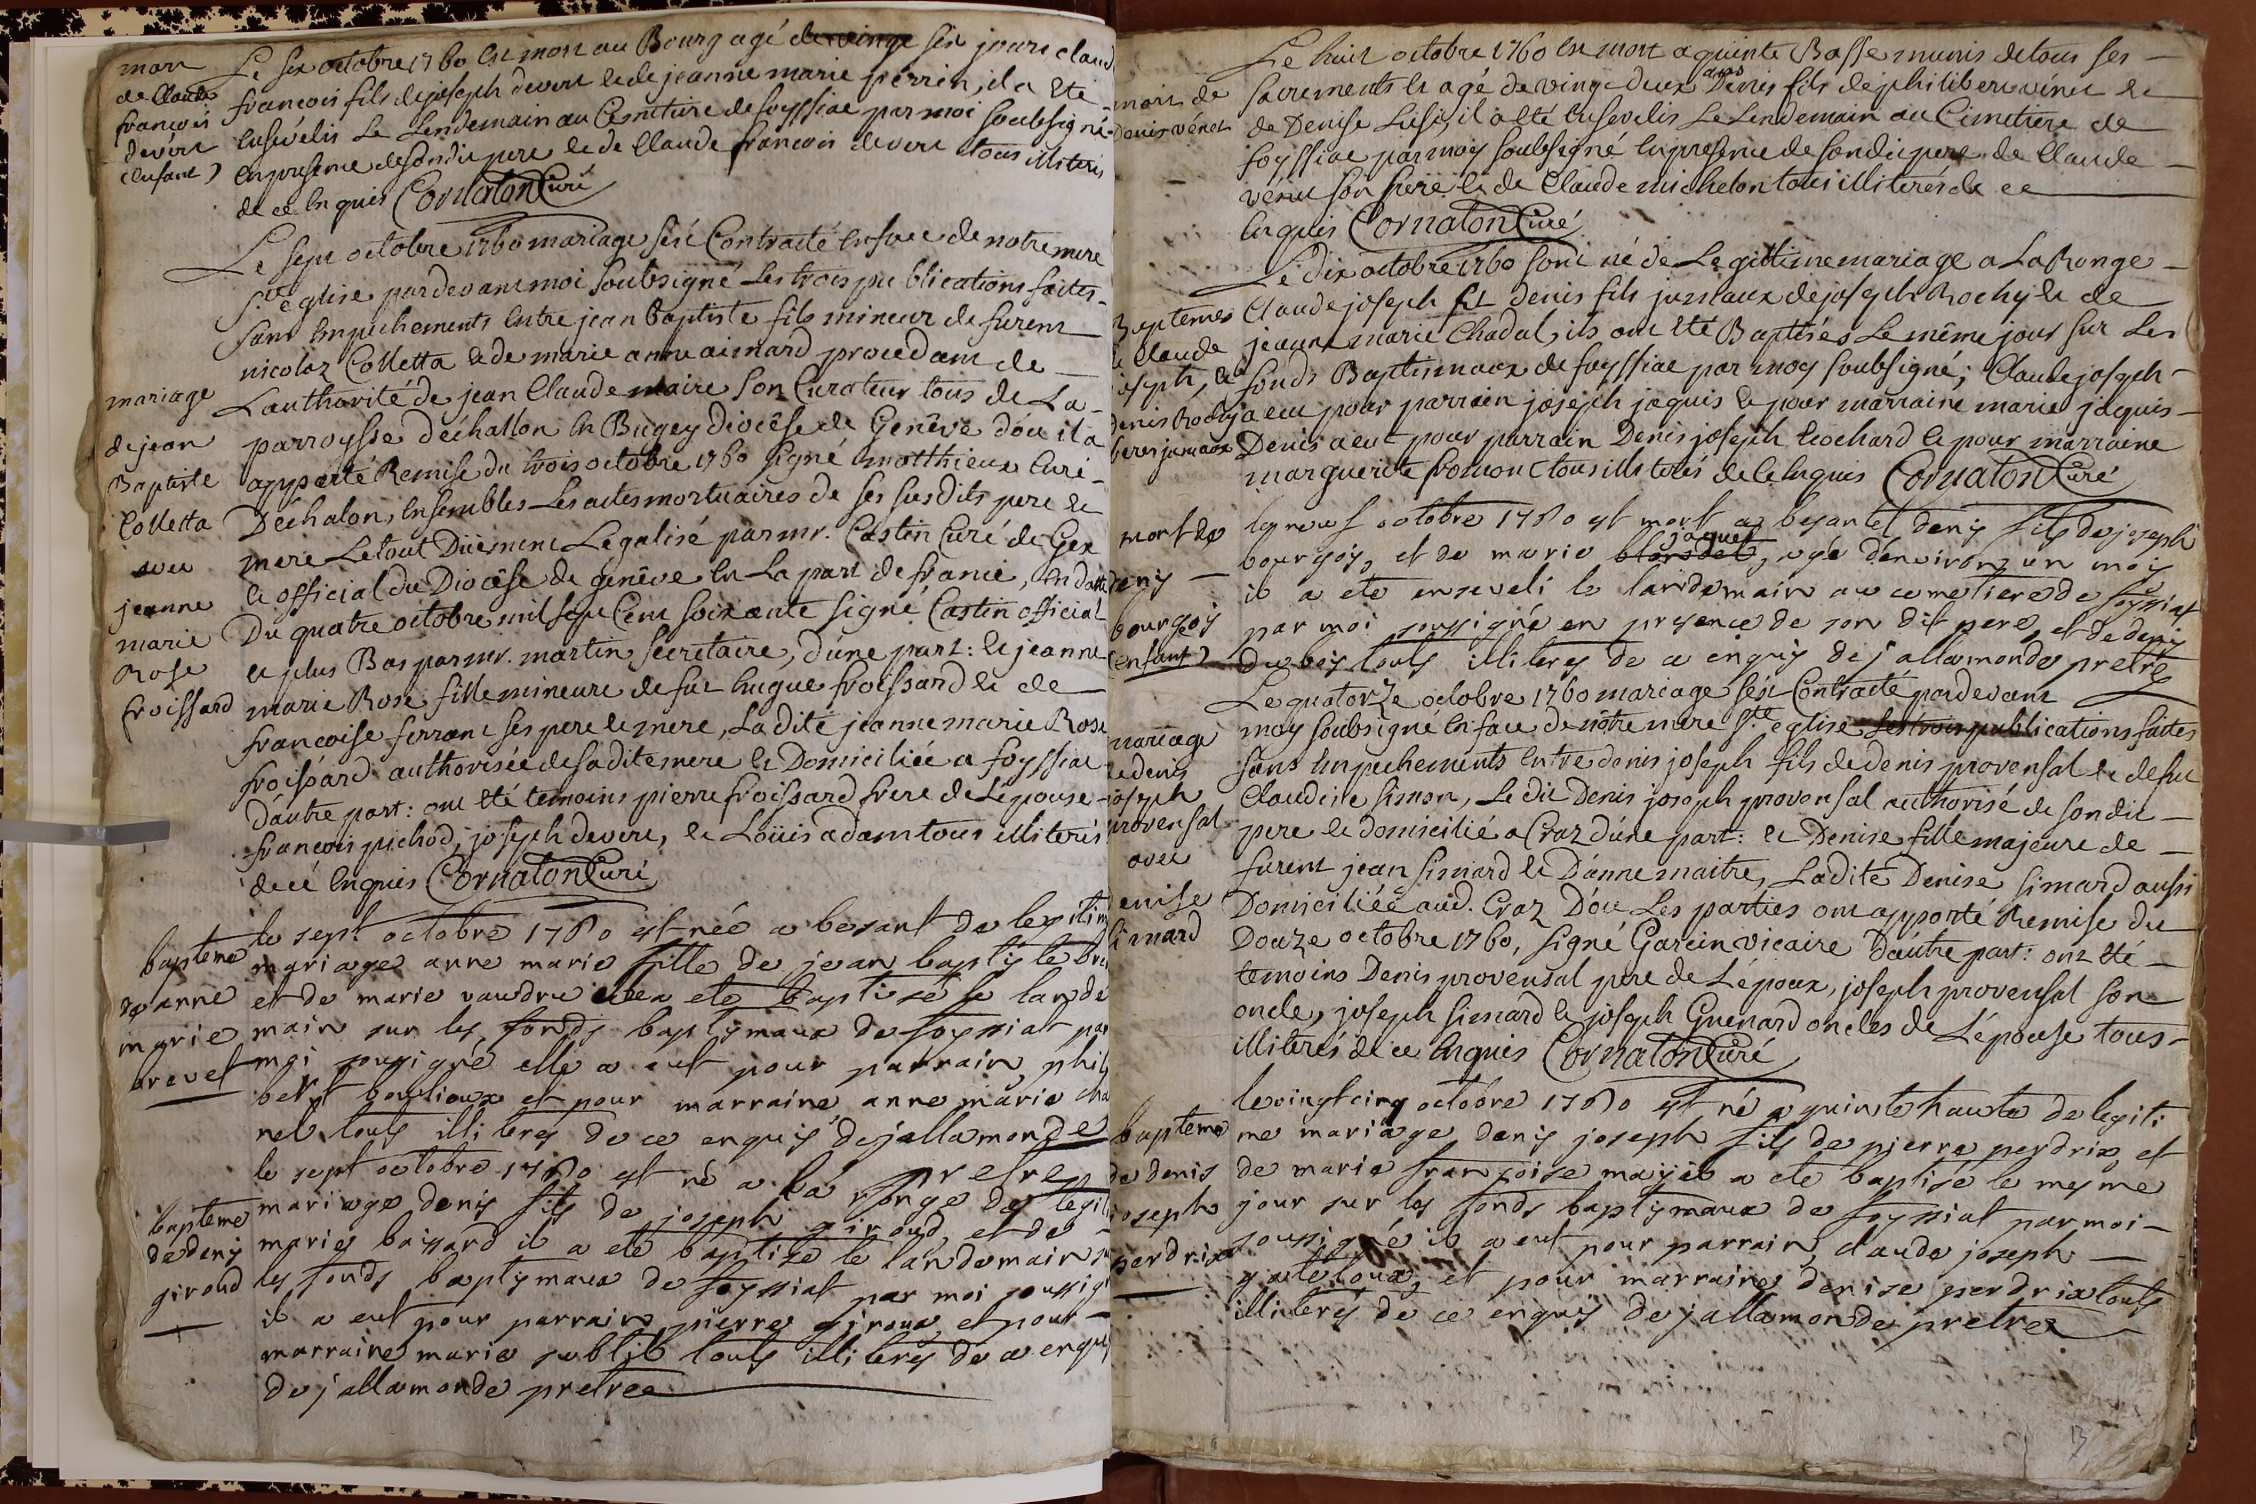 mort
de Claude
francois
devert
(enfant)
Le six octobre 1760 est mort au Bourg agé de vingt six jours claud
francois fils de joseph devert et de jeanne marie perrin, il a été
Ensévélis Le Lendemain au Cemitiere de foyssiac par moi soubsigné
En presense de sondit pere et de Claude francois devert tous illiterés
de ce Enquis Cornaton Curé
mariage
de jean
Baptiste
Colletta
avec
jeanne
marie
Rose
froissard
Le sept octobre 1760 mariage s'est Contracté En face de notre mere
Ste église pardevant moi soubsigné Les trois publications faites
sans Empechements Entre jean Baptiste fils mineur de furent
nicolaz Colletta et de marie anne aimard procedant de
L'authorité de jean Claude maire son Curateur tous de La
parroysse d'échallon En Bugey Diocêse de Genêve d'óu il a
apporté Remise du trois octobre 1760 signé matthieux Curé
D'échalon, Ensembles Les actes mortuaires de ses susdits pere et
mere Letout Düement Légalisé par mr. Castin Curé de Gex
et official du Diocêse de genêve En La part de france, En datte
Du quatre octobre mil sept Cent soixante signé Castin official
et plus Bas par mr. martin secretaire, d'une part: et jeanne
marie Rose fille mineure de fut hugue froissard et de
francoise ferrant ses pere et mere, Ladite jeanne marie Rose
froissard authorisée de sadite mere et Domiciliée a foyssiac
D'autre part: ont été temoins pierre froissard frere de L'épouse
francois pichod, joseph devert, et Loüis adam tous illiterés
de cé Enquis Cornaton Curé
bapteme
de anne
marie
brevet
le sept octobre 1760 est née a besant de legitim
mariage anne marie fille de jean baptiste bre
et de marie vaudru elle a ete baptisé le lande
main sur les fonds baptismaux de foyssiat par
moi soussigné elle a eut pour parrain phili
bert bouilloux et pour marraine anne marie cha
nel touts illiterés de ce enquis dejallamonde
pretre
bapteme
de denis
giroud
le sept octobre 1760 est né a la ronge de legiti
mariage denis fils de joseph giroud, et de
marie boissard il a ete baptise le landemain su
les fonds baptismaux de foyssiat par moi soussig
il a eut pour parrain pierre giroux et pour
marraine marie sublib touts illiterés de ce enquis
de jallamonde pretre
mort de
Denis vénet
Le huit octobre 1760 est mort a quinte Basse munis de tous ses
sacrements et agé de vingt deux ans Denis fils de philibert vénet et
de Denise Lusi, il a été Ensevelis Le Lendemain au Cimetiere de
foyssiac par moy soubsigné En presense de sondit pere de Claude
vénet son frere et de Claude michelon tous illiterés de ce
Enquis Cornaton Curé
Baptemes
de Claude
joseph, et
denis Rochy
freres jumaux
Le dix octobre 1760 sont né de Legittime mariage a La Ronge
Claude joseph et denis fils jumaux de joseph Rochy et de
jeanne marie Chadal, ils ont été Baptisés Le même jour sur Les
fonds Baptismaux de foyssiac par moy soubsigné; Claude joseph
a eu pour parrain joseph jaquis et pour marraine marie jaquis
Denis a eut pour parrain Denis joseph Cochard et pour marraine
marguerite fromont tous illiterés de ce Enquis Cornaton Curé
mort de
denis
bourgois
(enfant)
le neuf octobre 1760 est mort a besantet denis fils de joseph
bourgois, et de marie blondel jaquet, agé d'environ un mois
il a ete enseveli le landemain au cemetiere de foyssiat
par moi soussigné en presence de son dit pere, et de denis
dubois touts illiterés de ce enquis de jallamonde pretre
mariage
de denis
joseph
provensal
avec
denise
simard
Le quatorze octobre 1760 mariage s'est Contracté pardevant
moy soubsigné En face de nôtre mere Ste église Les trois publications faittes
sans Empechements Entre denis joseph fils de denis provensal et de fut
Claudine simon, Ledit Denis joseph provensal authorisé de sondit
pere et domicilié a Craz d'une part: et Denise fille majeure de
furent jean simard et D'anne maitre, Ladite Denise simard aussi
Domiciliée aud. Craz D'óu Les parties ont apporté Remise du
Douze octobre 1760, signé Garcin vicaire D'autre part: ont été
temoins Denis provensal pere de L'époux, joseph provensal son
oncle, joseph simard et joseph Guenard oncles de L'épouse tous
illiterés de ce Enquis Cornaton Curé
bapteme
de denis
joseph
perdrix
le vingt cinq octobre 1760 est né a quinte haute de legiti
me mariage denis joseph fils de pierre perdrix, et
de marie françoise mayet a ete baptisé le mesme
jour sur les fonds baptismaux de foyssiat par moi
soussigné il a eut pour parrain claude joseph
gateloux, et pour marraine denise perdrix touts
illiterés de ce enquis de jallamonde pretre